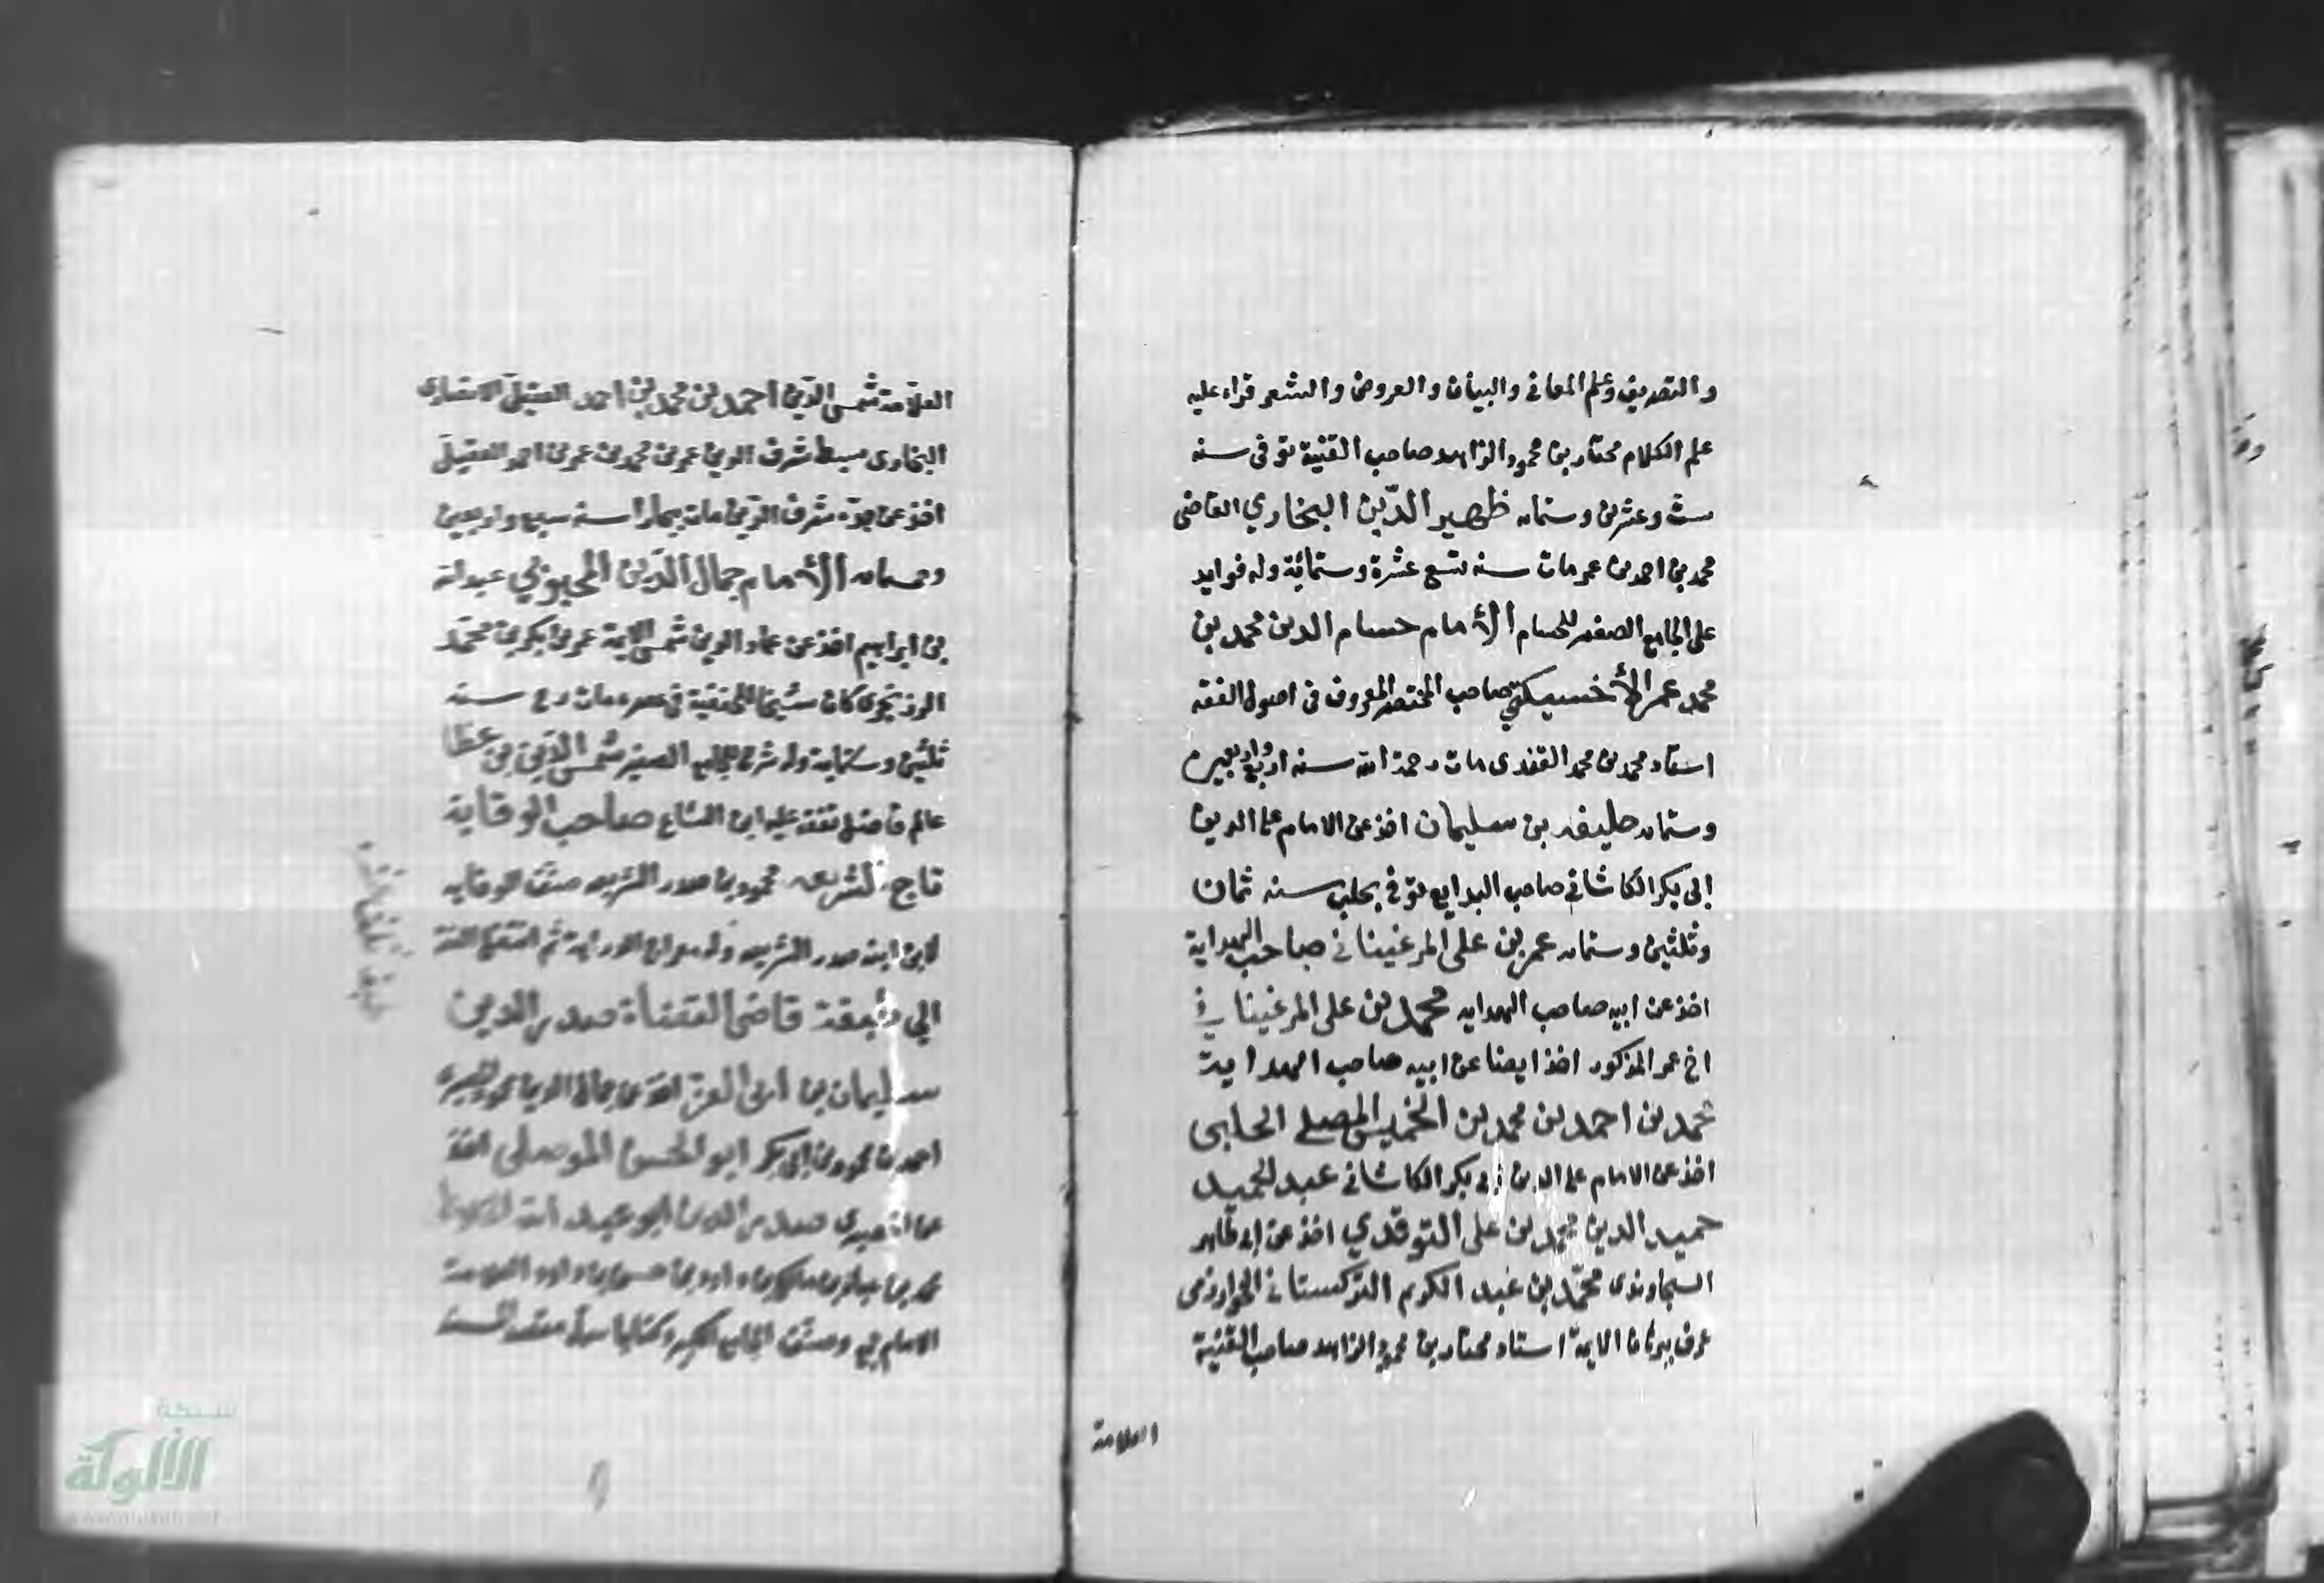 والتصريف وعلم المعاني والبيان والعروض والشعر قراء عليه
علم الكلام مختار بن محمود الزاهد صاحب القنية توفى سنه
ست وعشرين وستمايه ظهير الدين البخاري القاضى
محمد بن احمد بن عمر مات سنه تسع عشرة وستمائة وله فوايد
على الجامع الصغير للحسام الأمام حسام الدين محمد بن
محمد عمر الأخسيكتي صاحب المختصر المعروف فى اصول الفقه
استاد محمد بن محمد مات رحمة الله سنه اربع واربعين
وستمايه خليفه بن سليمان اخذ عن الامام علا الدين
ابى بكر الكاشاني صاحب البدايع توفي بحلب سنه ثمان
وثلثين وستمايه عمر بن على المرغيناني صاحب الهداية
اخذ عن ابيه صاحب الهدايه محمد بن على المرغيناني
اخ عمر المذكور اخذ ايضا عن ابيه صاحب الهداية
محمد بن احمد بن محمد بن الخميس الحلبى
اخذ عن الامام علا الدين ابى بكر الكاشاني عبد الحميد
حميد الدين محمد بن على التوقدي اخذ عن ابى طاهر
السجاوندى محمد بن عبد الكريم التركستاني الخوارزمى
عرف ببرهان الايمة استاد مختار بن محمود الزاهد صاحب القنية
العلامة
العلامة شمس الدين احمد بن محمد بن احمد العقيلى الانصارى
البخارى سبط شرف الدين عمر بن محمد بن عمر بن احمد العقيلى
اخذ عن جده شرف الدين مات ببخارا سنه سبع واربعين
وستمايه الأمام جمال الدين المحبوبي عبد الله
بن ابراهيم اخذ عن عماد الدين شمس الايمة عمر بن بكر بن محمد
الزرنجرى كان شيخا للحنفية فى عصره مات سنه
ثلثين وستماية وله شرح للجامع الصغير شمس الدين بن عطا
عالم فاضل تفقه عليه ابن صاحب الوقاية
تاج الشريعه محمود بن صدر الشريعه صنف الوقايه
لابن ابنه صدر الشريعه وله
ابي حنيفة قاضى القضاة صدر الدين
سليمان بن ابى العز اخذ عن جمال الدين
احمد بن محمود بن ابى بكر ابو الحسن الموصلى اخذ
عن الحصيرى صدر الدين ابو عبد الله
محمد بن عباد بن ملك بن داود بن حسن بن داود